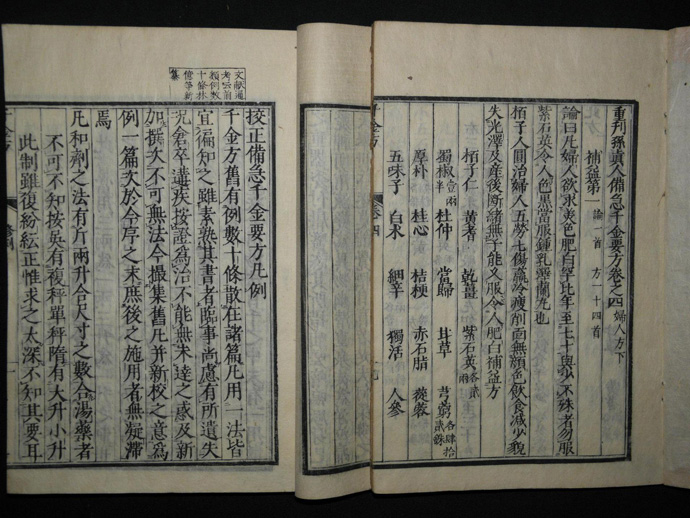 重刊孫真人備急千金要方卷之四 婦人方下
補益第一 論一首 方一十四首
論曰凡婦人欲求美色肥白罕比年至七十與少不殊者勿服
紫石英令人色黑當服鍾乳澤蘭丸也
栢子仁圓治婦人五勞七傷羸冷瘦削面無顏色飲食減少貌
失光澤及產後斷緒無子能久服令人肥白補益方
栢子仁 黃耆 乾薑 紫石英 各貳兩
蜀椒 壹兩半 杜仲 當歸 甘草 芎藭 各肆拾貳銖
厚朴 桂心 桔梗 赤石脂 蓯蓉
五味子 白朮 細辛 獨活 人參
文獻通
十餘林
億等新
集
挍正備急千金要方凡例
千金方舊有例數十條散在諸篇凡用一法皆
宜徧知之雖素熟其書者臨事尚慮有所遺失
況倉卒遘疾按證為治不能無未達之惑及新
加撰次不可無法今撮集舊凡并新校之意為
例一篇次於今序之末庶後之施用者無疑滯
焉
凡和劑之法有斤兩升合尺寸之數合湯藥者
不可不知按吳有複秤單秤隋有大升小升
此制雖復紛紜正惟求之太深不知其要耳